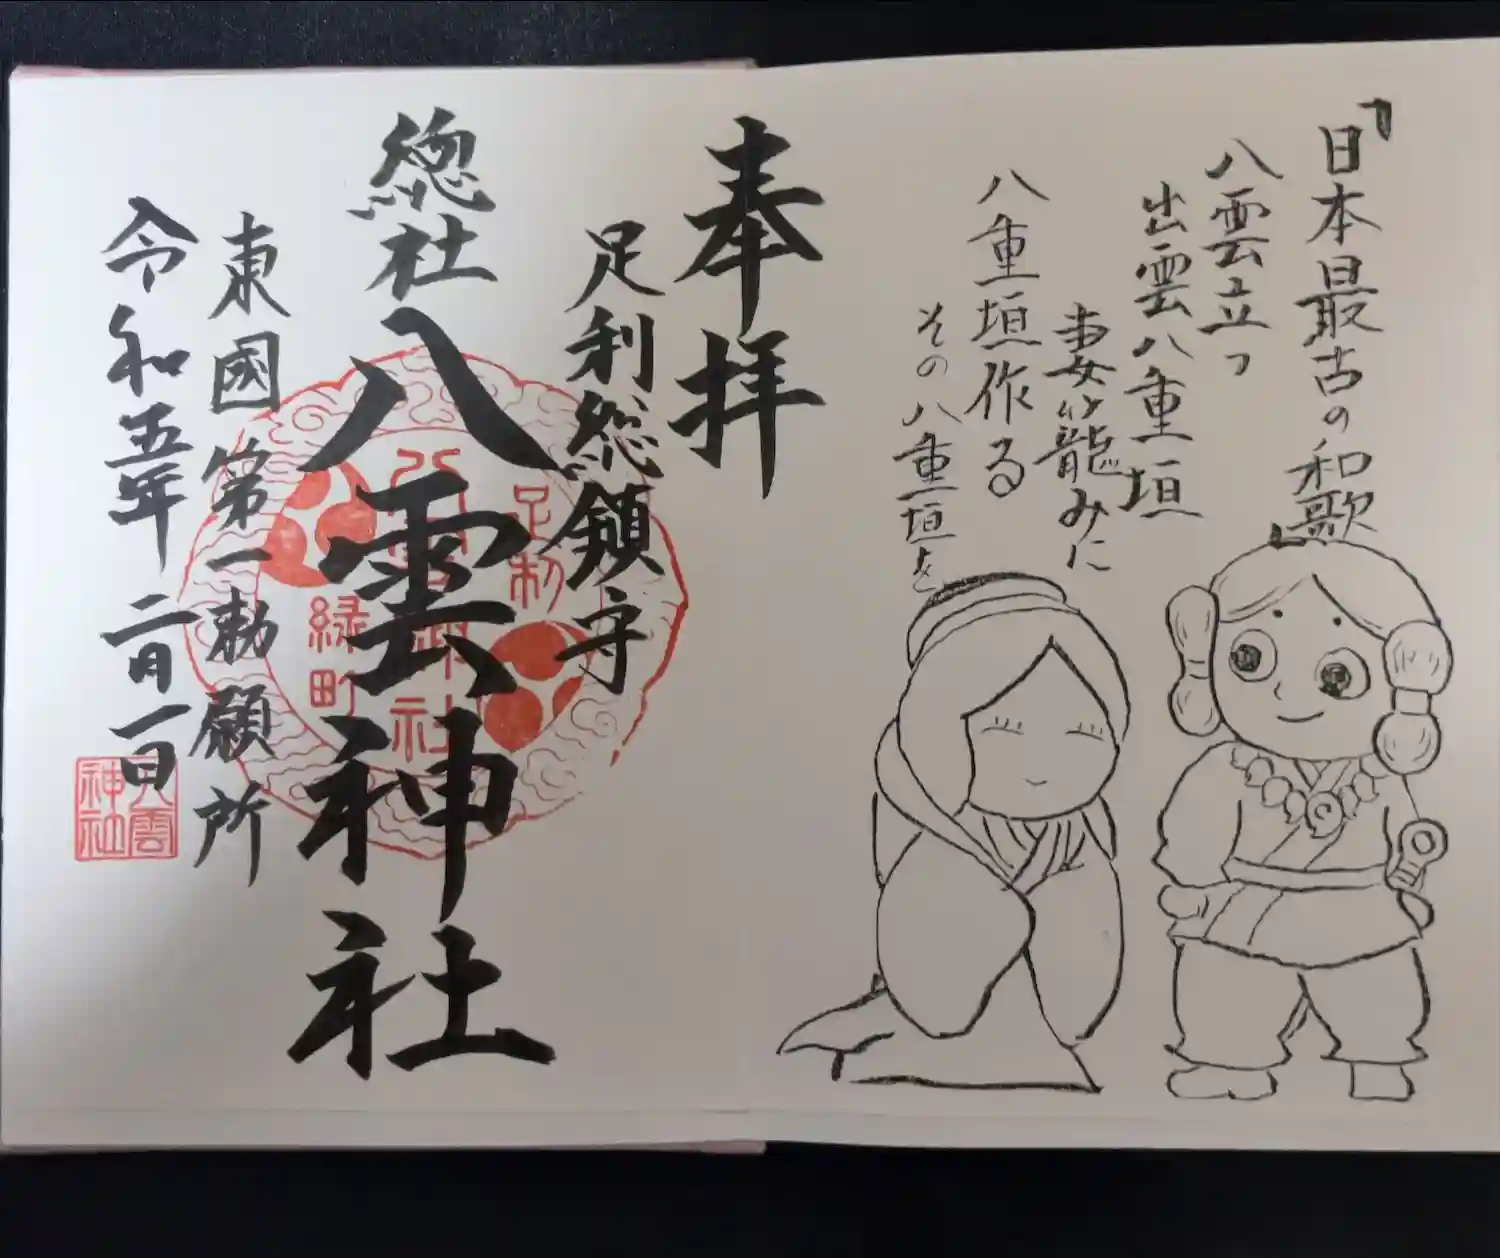 「日本最古の和歌」
八雲立つ
出雲八重垣
妻籠みに
八重垣作る
その八重垣を
奉拝
足利総鎮守
総社八雲神社
東國第一勅願所
令和五年二月一日
足利
八雲神社
緑町
八雲
神社